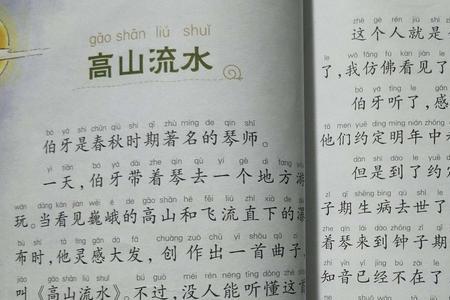 gāo shān liú shuǐ
高山流水
bó yá shì chūn qiū shí qī zhù míng de qín shī
伯牙是春秋时期著名的琴师。
yì tiān bó yá dài zhe qín qù yí gè dì fang yóu
一天，伯牙带着琴去一个地方游
wán dāng kàn jiàn wēi é de gāo shān hé fēi liú zhí xià de pù
玩。当看见巍峨的高山和飞流直下的瀑
bù shí tā líng gǎn dà fā chuàng zuò chū yì shǒu qǔ zi
布时，他灵感大发，创作出一首曲子，
jiào gāo shān liú shuǐ bú guò méi rén néng tīng dǒng zhè shǒu
叫《高山流水》。不过，没人能听懂这首
zhè gè rén jiù shì
这个人就是
le wǒ fǎng fú kàn jiàn le
了，我仿佛看见了
bó yá tīng le gǎn
伯牙听了，感
tā men yuē dìng míng nián zhōng
他们约定明年中
dàn shì dào le yuē
但是到了约
zǐ qī shēng bìng qù shì le
子期生病去世了
zhe qín lái dào zhōng zǐ qī
着琴来到钟子期
zhī yīn yǐ jīng bú zài le
知音已经不在了